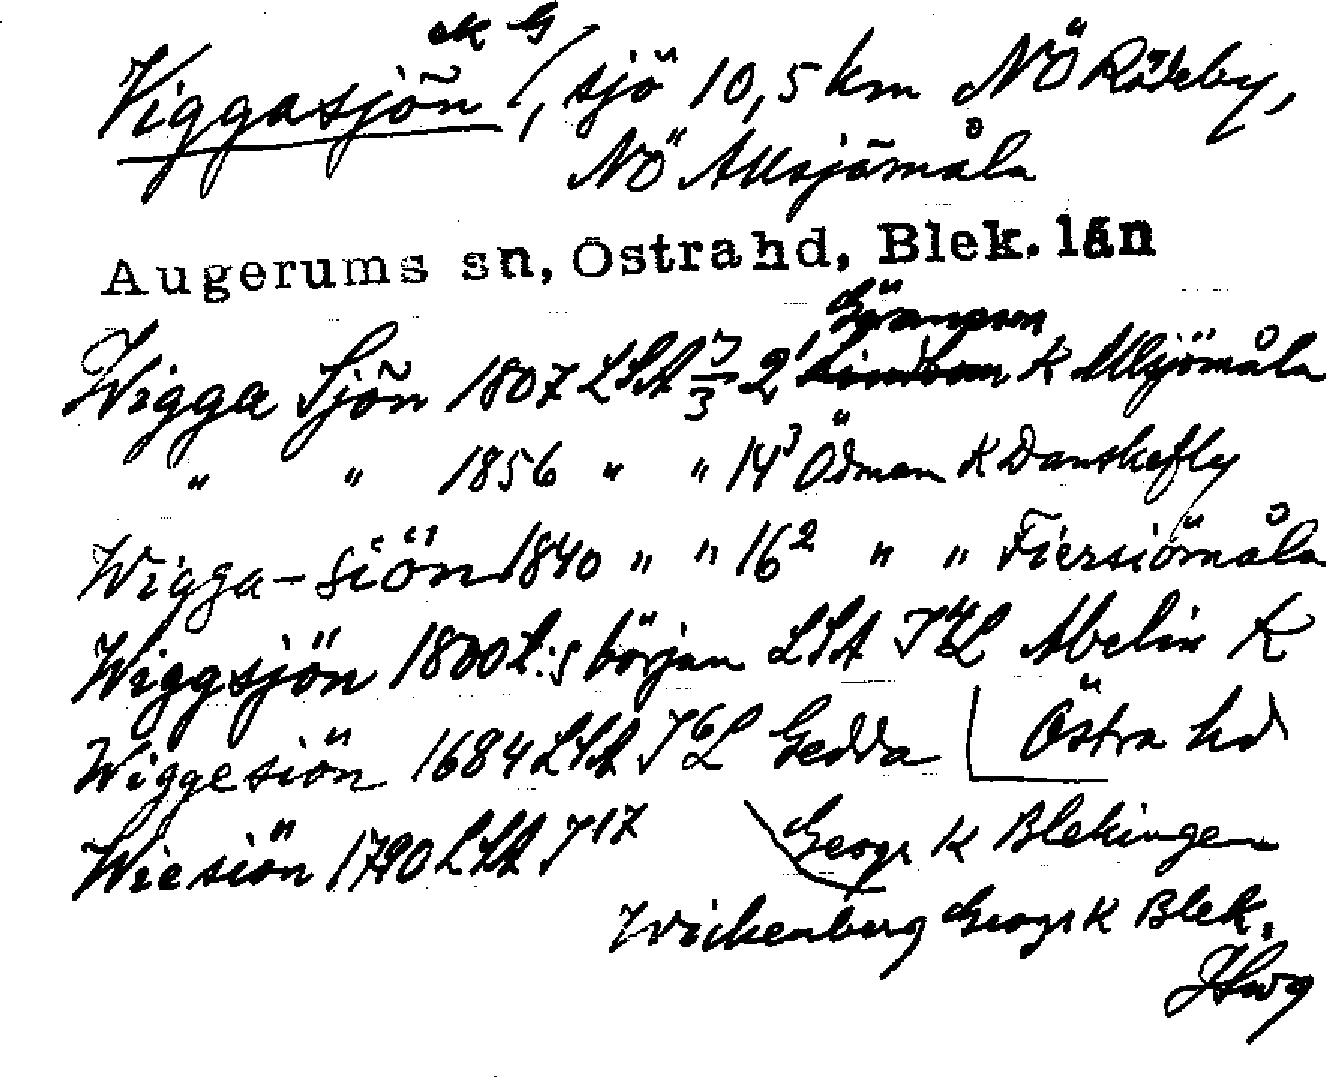 ek G
Viggasjön, sjö 10,5 km NÖ Rödeby,
NÖ Allsjömåla
Augerums sn, Östra hd, Blek. län
Göranson
Wigga Sjön 1807 LSA 2 K Allsjömåla
" " 1856 " " 14³ Ödman K Danskefly
Wigga-siön 1840 " " 16² " " Fiersiömåla
Wiggsjön 1800t:s början LSA Abelin K
Wiggesiön 1684 LSA Gedda Östra hd
Wiesiön 1790 LSA J17 Geogr K Blekingen
Wickenberg Geogr K Blek.